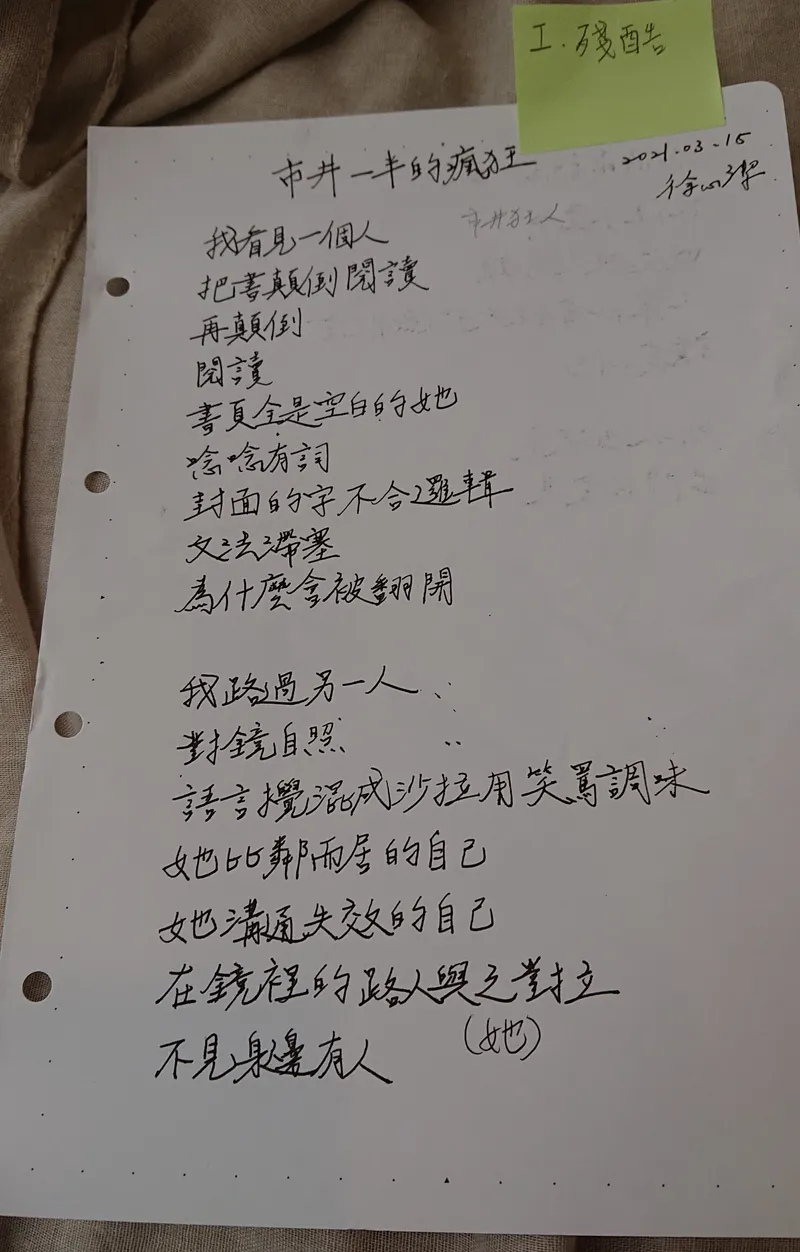 I. 殘酷
市井一半的瘋狂
2021.03.15
徐
市井狂人
我看見一個人
把書顛倒閱讀
再顛倒
閱讀
書頁全是空白的她
唸唸有詞
封面的字不合邏輯
文法滯塞
為什麼會被翻開
我路過另一人
對鏡自照
語言攪混成沙拉用笑罵調味
她比鄰而居的自己
她溝通失效的自己
在鏡裡的路人與之對立
(她)
不見身邊有人